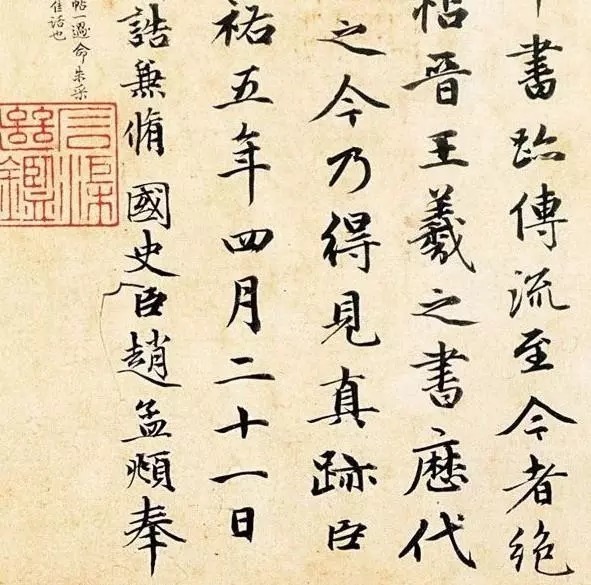 書跡傳流至今者絕
帖晉王羲之書歷代
之今乃得見真跡臣
祐五年四月二十一日
誥兼脩國史臣趙孟頫奉
帖一過命朱
佳話也
石渠繼鑑